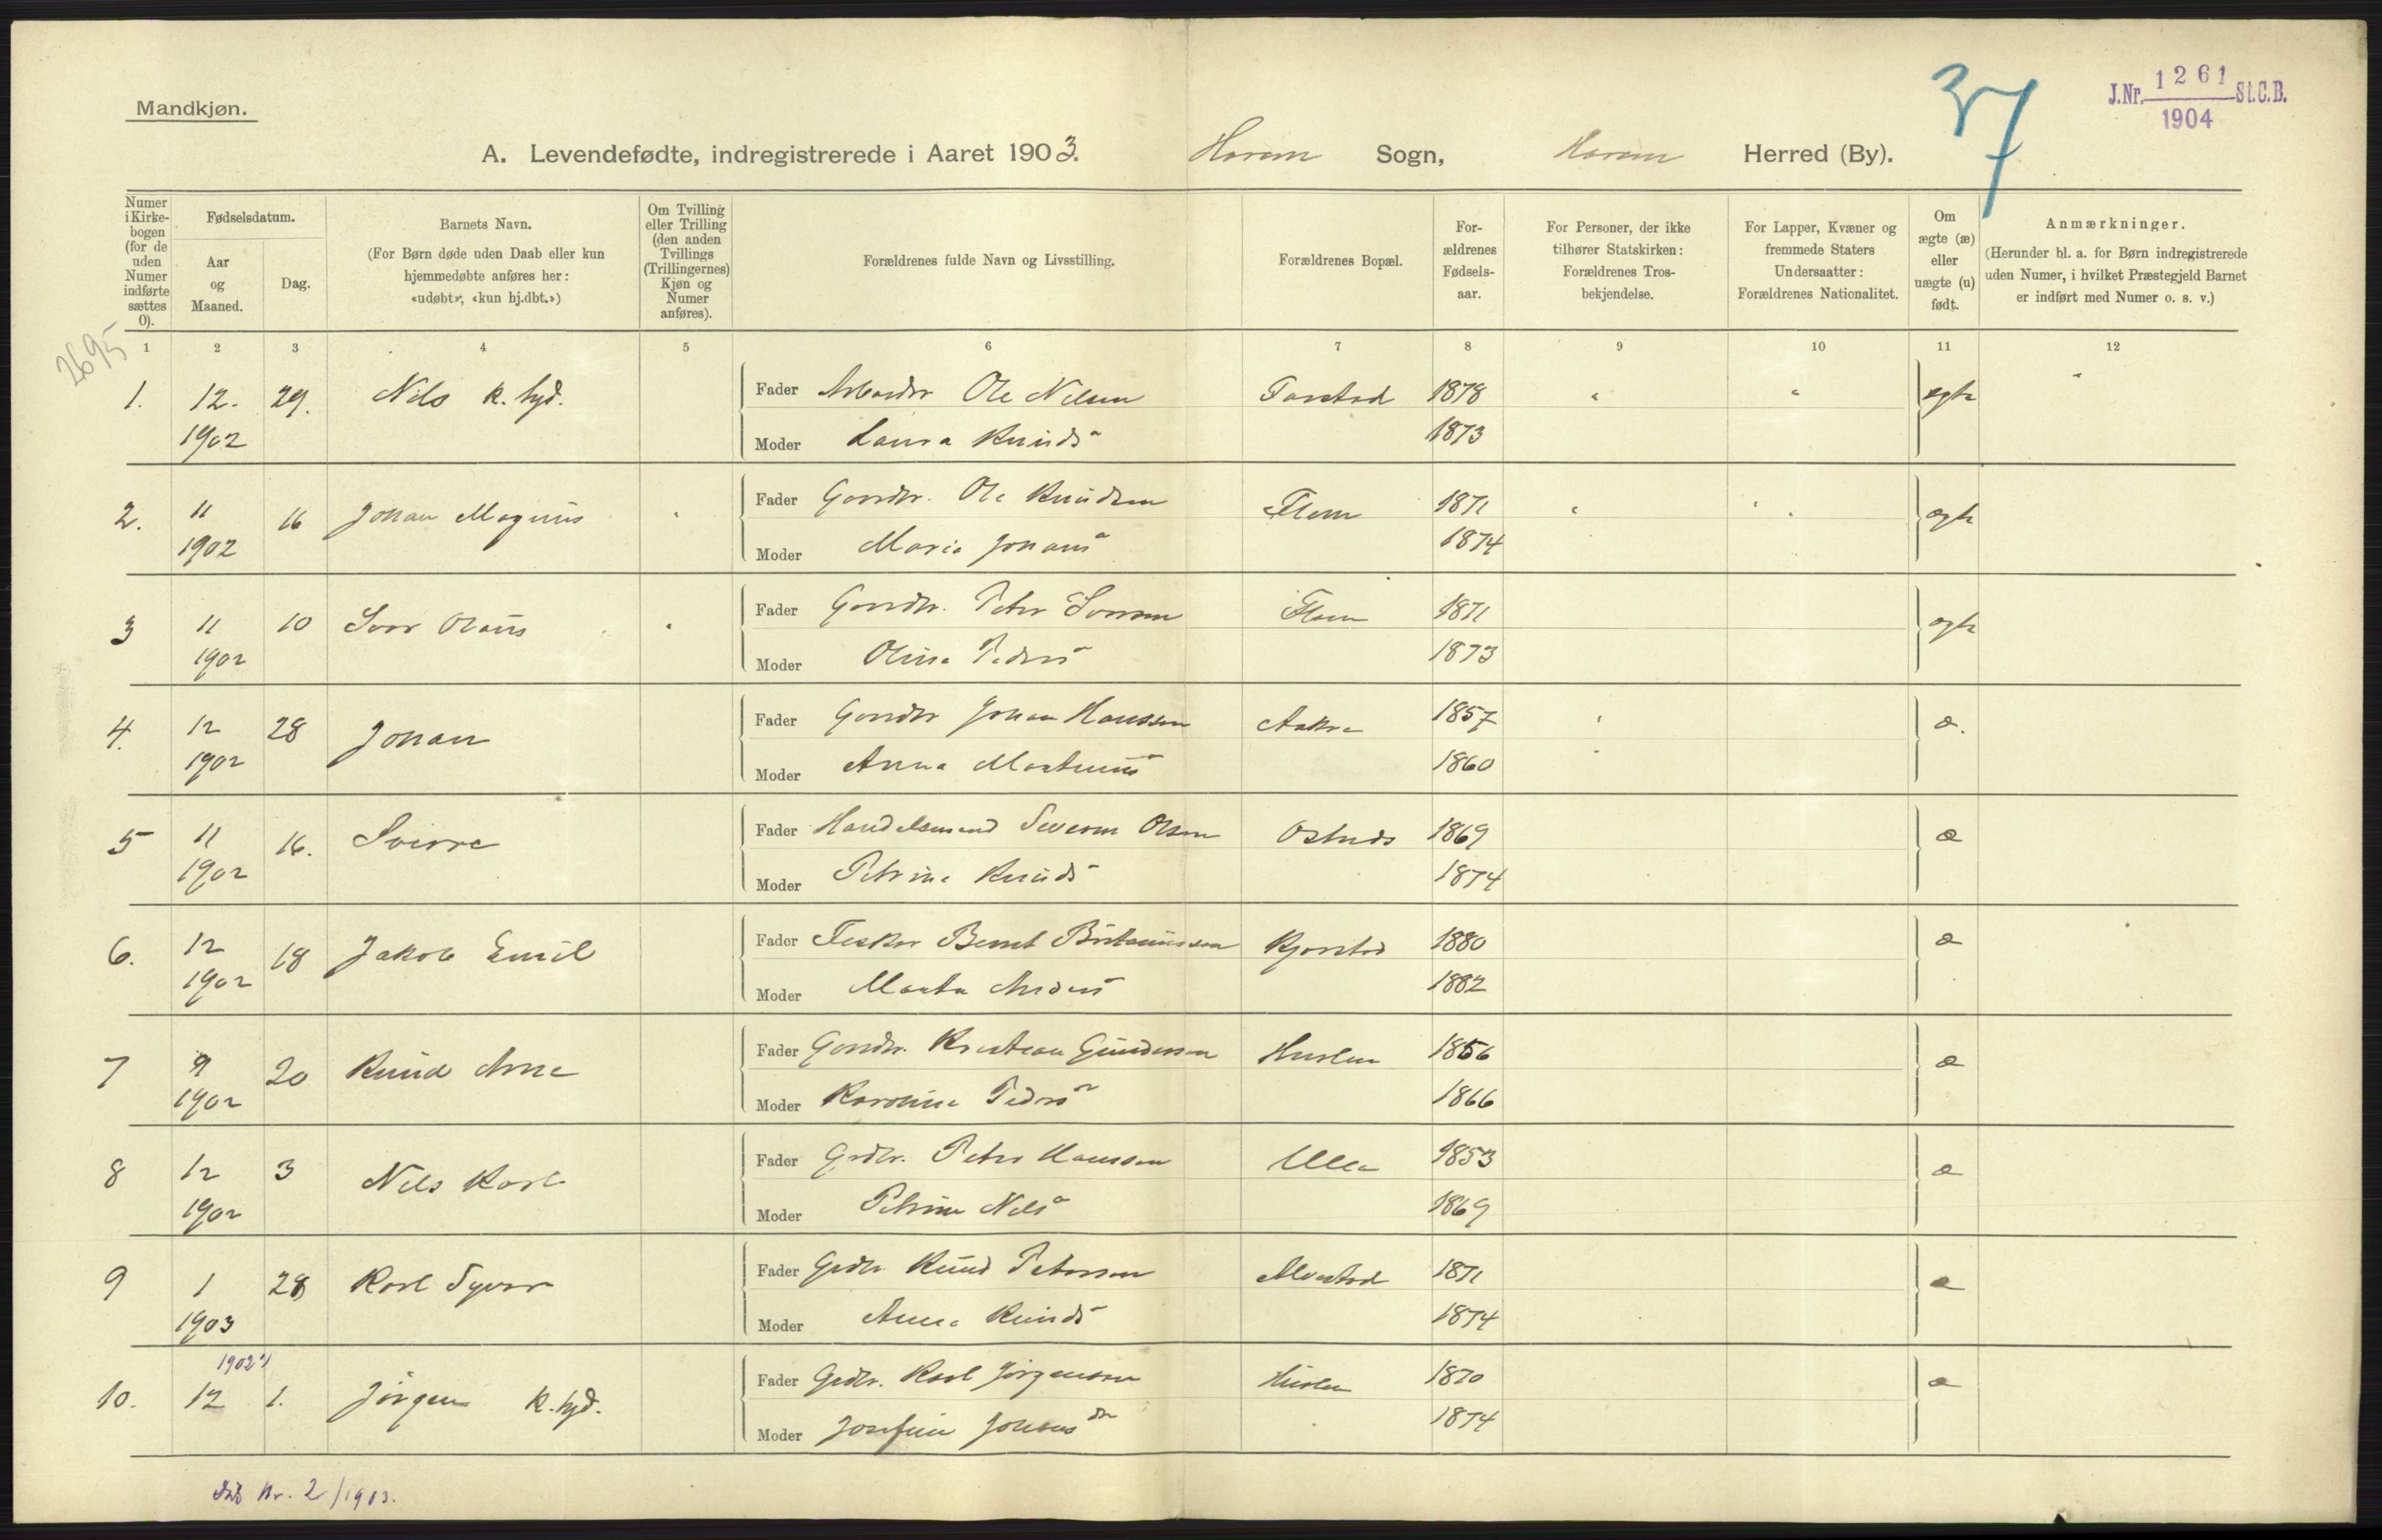 Mandkjøn.
J.Nr. 1261 St.C.B.
1904
37
A. Levendefødte, indregistrerede i Aaret 1903. Haram Sogn, Haram Herred (By).
Numer i Kirkebogen (for de uden Numer indførte sættes 0).
Fødselsdatum.
Aar og Maaned.
Dag.
Barnets Navn.
(For Børn døde uden Daab eller kun hjemmedøbte anføres her: «udøbt», «kun hj.dbt.»)
Om Tvilling eller Trilling (den anden Tvillings (Trillingernes) Kjøn og Numer anføres).
Forældrenes fulde Navn og Livsstilling.
Forældrenes Bopæl.
Forældrenes Fødselsaar.
For Personer, der ikke tilhører Statskirken: Forældrenes Trosbekjendelse.
For Lapper, Kvæner og fremmede Staters Undersaatter: Forældrenes Nationalitet.
Om ægte (æ) eller uægte (u) født.
Anmærkninger.
(Herunder bl. a. for Børn indregistrerede uden Numer, i hvilket Præstegjeld Barnet er indført med Numer o. s. v.)
1 2 3 4 5 6 7 8 9 10 11 12
2695
1. 12. 29. Nils k. hjd. Fader Arbeider Ole Nilsen 1878 " " egte "
1902 Moder Laura Knuds 1873
2. 11 16 Johan Magnus Fader Gaardbr. Ole Knudsen Flem 1871 egte
1902 Moder Maria Johans 1874
3 11 10 Iver Olaus Fader Gaardbr. Peter Iversen Flem 1871 egte
1902 Moder Oline Peders 1873
4. 12 28 Johan Fader Gaardbr Johan Hanssen Aakre 1857 æ.
1902 Moder Anna Martinus 1860
5 11 16. Sverre Fader Handelsmand Severin Olsen Ostnes 1869 æ
1902 Moder Petrine Knuds 1874
6. 12 18 Jakob Emil Fader Fisker Bernt Kjerstad 1880 æ
1902 Moder Marta Anders 1882
7 9 20 Knud Arne Fader Gaardbr. Kristian Gundersen Hurlen 1856 æ
1902 Moder Karoline Peders 1866
8 12 3 Nils Karl Fader Grdbr. Peter Hanssen Ulla 1853 æ
1902 Moder Petrine Nils 1869
9 1 28 Karl Syver Fader Grdbr. Knud Petersen Alvestad 1871 æ
1903 Moder Anna Knuds 1874
1902
10. 12 1. Jørgen k. hjd. Fader Grdbr. Karl Jørgensen Hurlen 1870 æ
Moder Josefine Johans dr 1874
Nr. 2/1903.